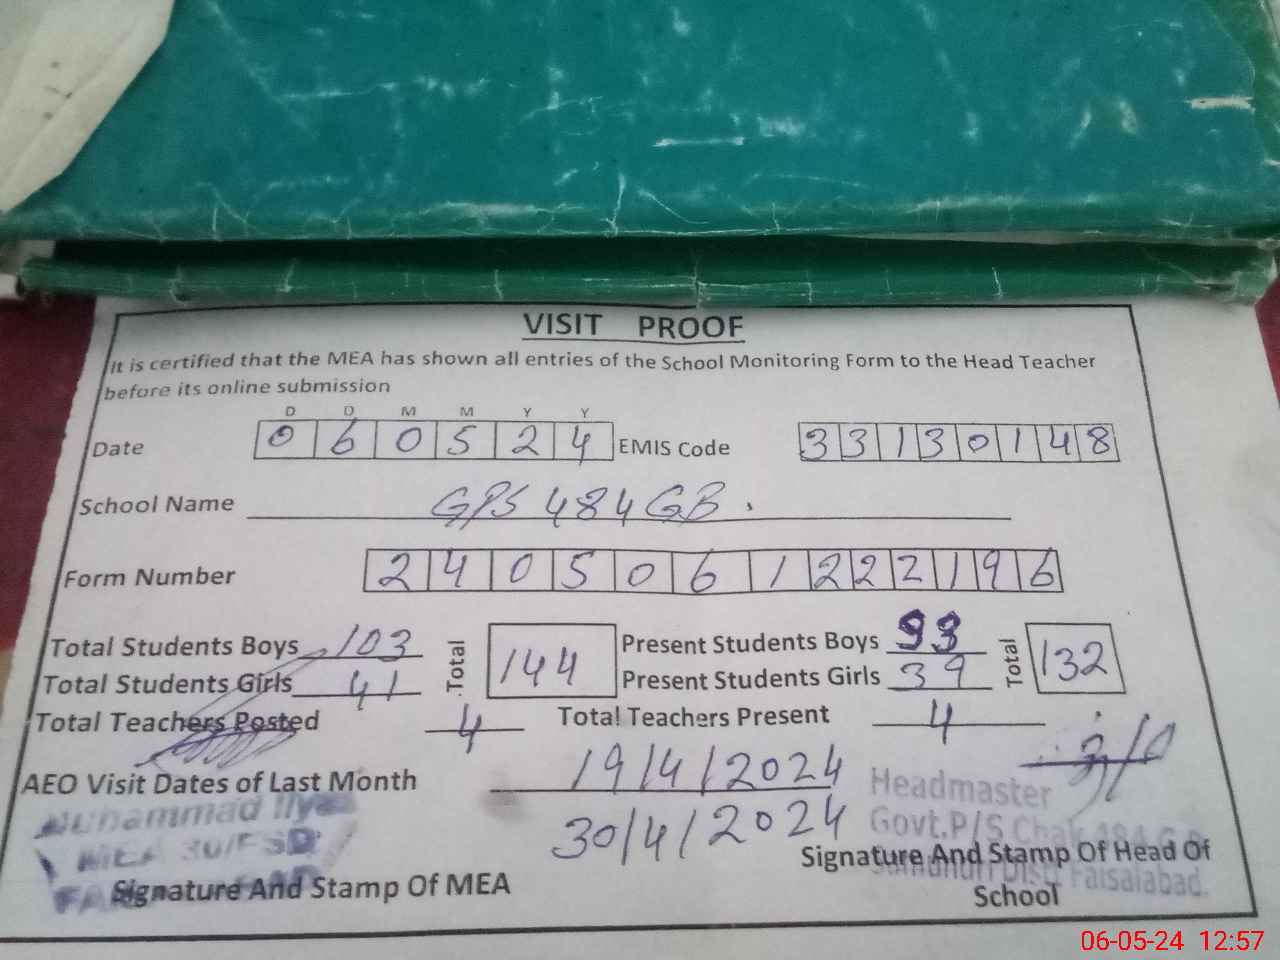 VISIT PROOF
It is certified that the MEA has shown all entries of the School Monitoring Form to the Head Teacher
before its online submission
D D M M Y Y
Date 0 6 0 5 2 4 EMIS Code 3 3 1 3 0 1 4 8
School Name GPS 484 GB.
Form Number 2 4 0 5 0 6 1 2 2 2 1 9 6
Total Students Boys 103 Total 144 Present Students Boys 93 Total 132
Total Students Girls 41 Present Students Girls 39
Total Teachers Posted 4 Total Teachers Present 4
AEO Visit Dates of Last Month 19/4/2024
30/4/2024
Muhammad Ilyas
MEA 30/FSD
Headmaster
Govt.P/S Chak 484 G.B
Samundri Distt Faisalabad.
Signature And Stamp Of MEA
Signature And Stamp Of Head Of
School
06-05-24 12:57